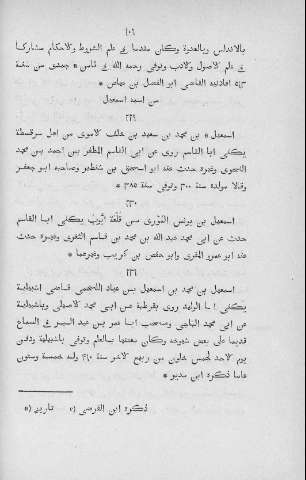 ١٠٦
بالاندلس وبالعدوة وكان مقدما في علم الشروط والاحكام مشاركا
في علم الاصول والادب وتوفي رحمه الله في فاس * جمدى من سنة
٥٤٣ افادنيه القاضي ابو الفضل بن عياض *
من اسمه اسمعيل
٢٢٩
اسمعيل * بن محمد بن سعيد بن خلف الاموي من اهل سرقسطة
يكنى ابا القاسم روى عن ابي القاسم المظفر بن احمد بن محمد
النحوي وغيره حدث عنه ابو اسحق بن شنظير وصاحبه ابو جعفر
وقالا مولده سنة ٣٠٠ وتوفي سنة ٣٨٥ *
٢٣٠
اسمعيل بن يونس المورى من قلعة ايوب يكنى ابا القاسم
حدث عن ابي محمد عبد الله بن محمد بن قاسم الثغري وغيره حدث
عنه ابو عمرو المقرى وابو حفص بن كريب وغيرهما *
٢٣١
اسمعيل بن محمد بن اسمعيل بن عباد اللخمي قاضي اشبيلية
يكنى ابا الوليد روى بقرطبة عن ابي محمد الاصيلي وباشبيلية
عن ابي محمد الباجي وصحب ابا عمر بن عبد البر في السماع
قديما على بعض شيوخه وكان معتنيا بالعلم وتوفي باشبيلية ودفن
يوم الاحد لخمس خلون من ربيع الاخر سنة ٤١٠ وله خمسة وستون
عاما ذكره ابن مدير *
ذكره ابن الفرضي